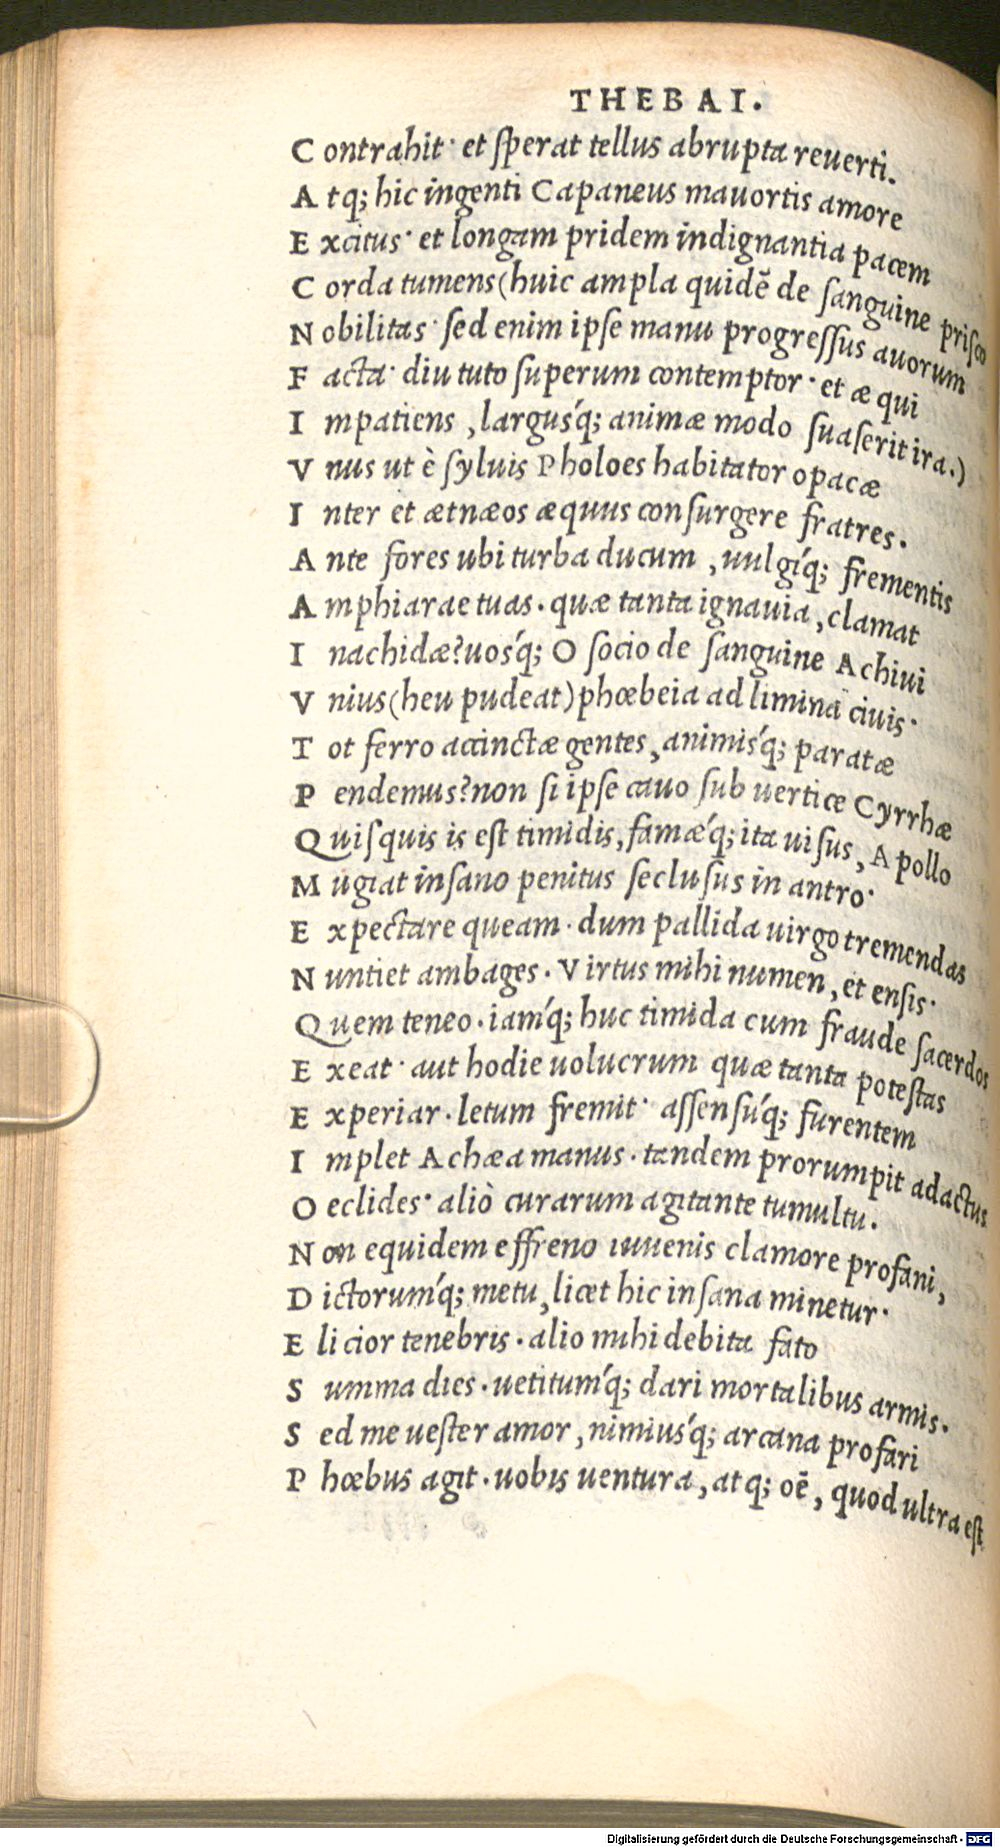 THEBAI.
Contrahit· et sperat tellus abrupta reuerti.
Atq; hic ingenti Capaneus mauortis amore
Excitus· et longam pridem indignantia pacem
Corda tumens(huic ampla quidē de sanguine prisco
Nobilitas· sed enim ipse manu progressus auorum
Facta· diu tuto superum contemptor· et æqui
Impatiens, largusq́; animæ modo suaserit ira.)
Vnus ut è syluis Pholoes habitator opacæ
Inter et ætnæos æquus consurgere fratres.
Ante fores ubi turba ducum, uulgiq́; frementis
Amphiarae tuas. quæ tanta ignauia, clamat
Inachidæ? uosq́; O socio de sanguine Achiui
Vnius(heu pudeat)phœbeia ad limina ciuis·
Tot ferro accinctæ gentes, animisq́; paratæ
Pendemus? non si ipse cauo sub uertice Cyrrhæ
Quisquis is est timidis, famæq́; ita uisus, Apollo
Mugiat insano penitus seclusus in antro·
Expectare queam· dum pallida uirgo tremendas
Nuntiet ambages. Virtus mihi numen, et ensis·
Quem teneo. iamq́; huc timida cum fraude sacerdos
Exeat· aut hodie uolucrum quæ tanta potestas
Experiar. letum fremit· assensuq́; furentem
Implet Achæa manus. tandem prorumpit adactus
Oeclides· aliò curarum agitante tumultu.
Non equidem effreno iuuenis clamore profani,
Dictorumq́; metu, licet hic insana minetur·
Elicior tenebris. alio mihi debita fato
Summa dies. uetitumq́; dari mortalibus armis.
Sed me uester amor, nimiusq́; arcana profari
Phœbus agit. uobis uentura, atq; oē, quod ultra est
Digitalisierung gefördert durch die Deutsche Forschungsgemeinschaft - DFG